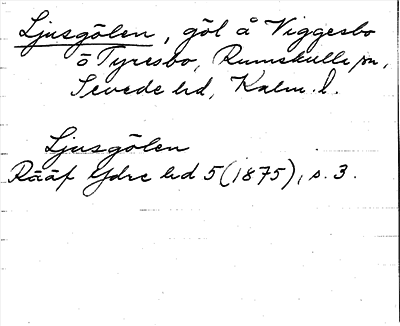 Ljusgölen, göl å Viggesbo
o Tyresbo, Rumskulla sn,
Sevede hd, Kalm. l.
Ljusgölen
Rääf Ydre hd 5 (1875), s. 3.